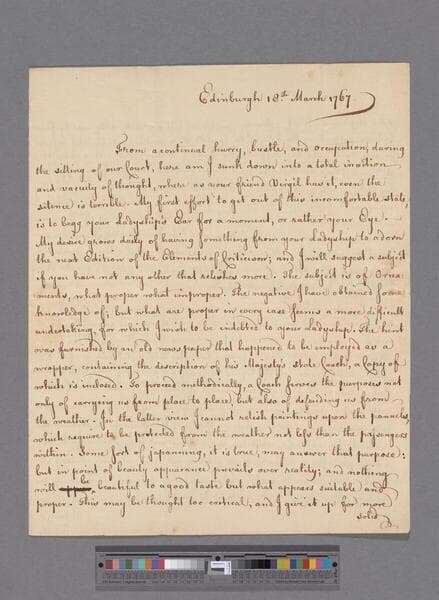 Edinburgh 18th March 1767
From a continual hurry, bustle, and occupation, during
the setting of our Court, here am I sunk down into a total inaction
and vacuity of thought, where as your friend Virgil has it, even the
silence is terrible. My first effort to get out of this incomfortable state,
is to begg your Ladyship's Ear for a moment, or rather your Eye.
My desire grows daily of having something from your Ladyship to adorn
the next Edition of the Elements of Criticism; and I will suggest a subject
if you have not any other that relishes more. The subject is of Orna
ments, what proper what improper. The negative I have obtained some
knowledge of; but what are proper in every case seems a more difficult
undertaking, for which I wish to be indebted to your Ladyship. The hint
was furnished by an old news paper that happened to be employed as a
wrapper, containing the description of his Majesty's state Coach, a Copy of
which is inclosed. To proceed methodically, a Coach serves the purposes not
only of carrying us from place to place, but also of defending us from
the weather. In the latter view I cannot relish paintings upon the pannels,
which require to be protected from the weather not less than the passengers
within. Some sort of japanning, it is true, may answer that purpose:
but in point of beauty appearance prevails over reality; and nothing
will be beautiful to a good taste but what appears suitable and
proper. This may be thought too critical, and I give it up for more
solid